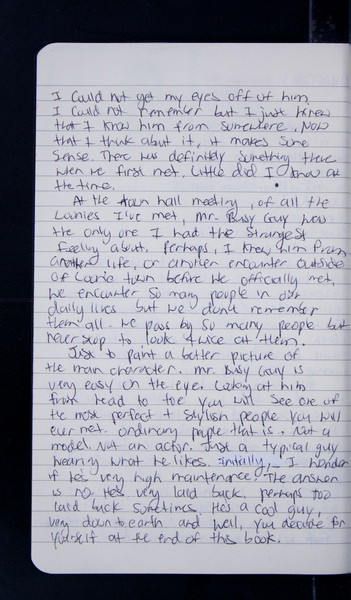 I could not get my eyes off of him.
I could not remember but I just knew
that I know him from somewhere. Now
that I think about it, it makes some
sense. There was definitely something there
when we first met. Little did I know at
the time.
At the town hall meeting, of all the
Loonies I've met, Mr. Busy Guy was
the only one I had the strangest
feeling about. Perhaps, I knew him from
another life, or another encounter outside
of Loonie town before we officially met.
We encounter so many people in our
daily lives but we don't remember
them all. We pass by so many people but
never stop to look twice at them.
Just to paint a better picture of
the main character. Mr. Busy Guy is
very easy on the eye. Looking at him
from head to toe you will see one of
the most perfect & stylish people you will
ever met. Ordinary people that is. Not a
model. Not an actor. Just a typical guy
wearing what he likes. Initially, I wonder
if he's very high maintenance? The answer
is no. He's very laid back. Perhaps too
laid back sometimes. He's a cool guy,
very down to earth and well, you decide for
yourself at the end of this book.